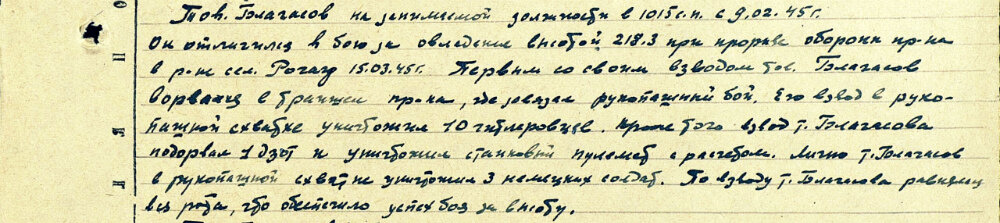 Тов. Благасов на занимаемой должности в 1015 с.п. с 9.02.45 г.
Он отличился в бою за овладения высотой 218.3 при прорыве обороны пр-ка
в р-не сел. Рогащ 15.03.45 г. Первым со своим взводом тов. Благасов
ворвался в траншеи пр-ка, где завязал рукопашный бой. Его взвод в руко-
пашной схватке уничтожил 10 гитлеровцев. Кроме того взвод т. Благасова
подорвал 1 дзот и уничтожил станковый пулемет с расчетом. Лично т. Благасов
в рукопашной схватке уничтожил 3 немецких солдат. По взводу т. Благасова равнялась
вся рота, что обеспечило успех боя за высоту.